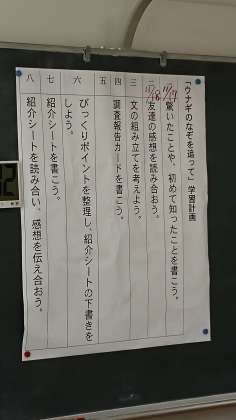 「ウナギのなぞを追って」学習計画
驚いたことや、初めて知ったことを書こう。
二 友達の感想を読み合おう。
三 文の組み立てを考えよう。
四 調査報告カードを書こう。
五
六 びっくりポイントを整理し、紹介シートの下書きを
しよう。
七 紹介シートを書こう。
八 紹介シートを読み合い、感想を伝え合おう。
2